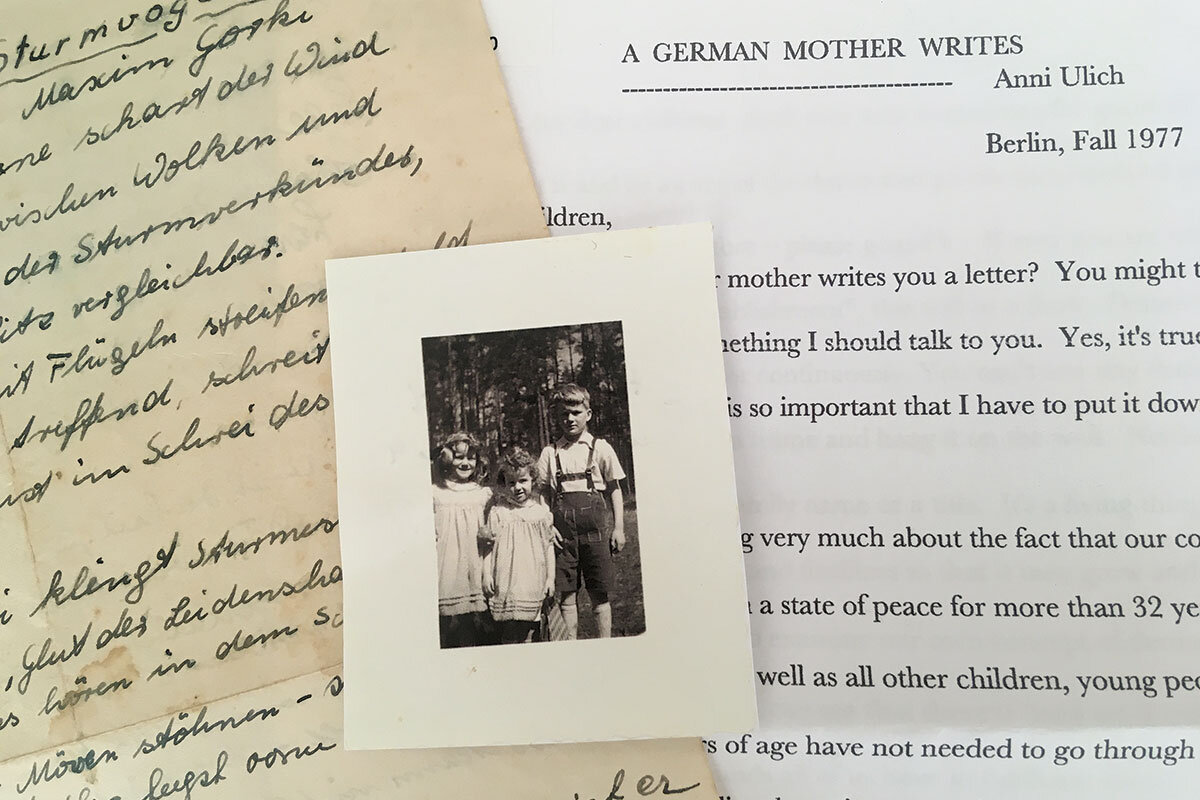 Sturmvog
Maxim Gorki
schart der Wind
Wolken und
der Sturmverkünder,
vergleichbar.
Flügeln streifen
treffend, schreit
im Schrei des
klingt Sturmes
Glut der Leidenscha
hören in dem Sc
Möven stöhnen -
A GERMAN MOTHER WRITES
Anni Ulich
Berlin, Fall 1977
ldren,
r mother writes you a letter? You might t
nething I should talk to you. Yes, it's true
is so important that I have to put it dow
g very much about the fact that our co
a state of peace for more than 32 ye
well as all other children, young peo
s of age have not needed to go through